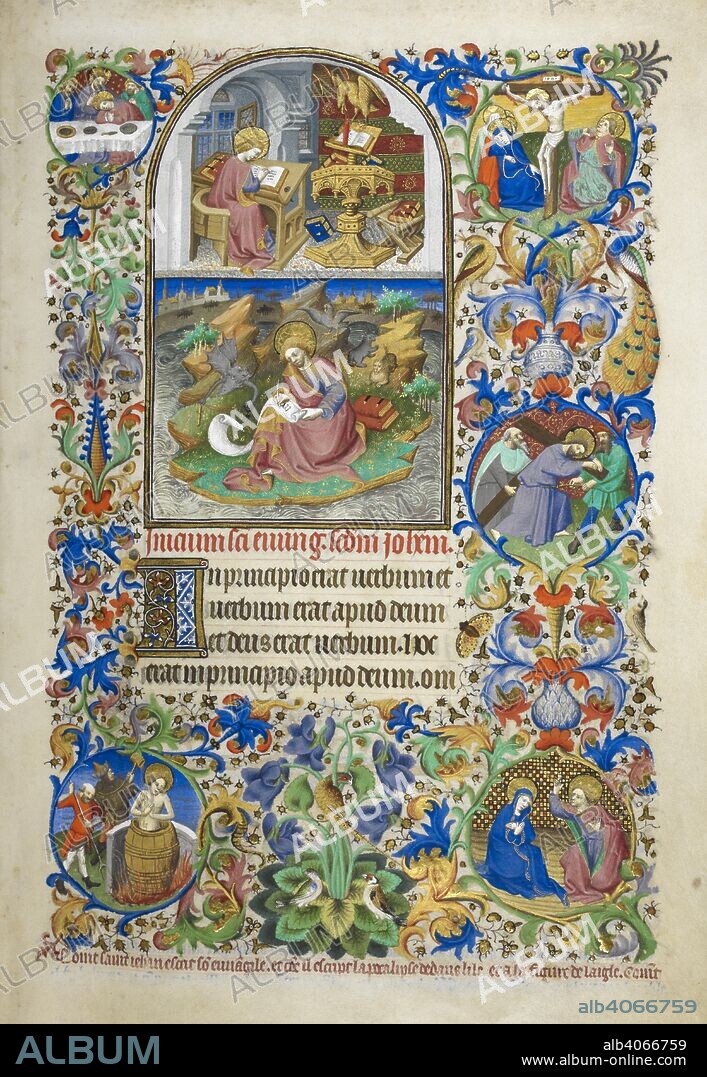 Inicium sci euung. sedm iohem.
In principio erat uerbum et
uerbum erat apud deum
et deus erat uerbum. hoc
erat in principio apud deum. om
saint iehan escrit so euuangile. et coe il escript lapocalipse dedans lile. et a la figure de laigle. Comt
ALBUM
alb4066759
ALBUM
alb4066759
album-online.com